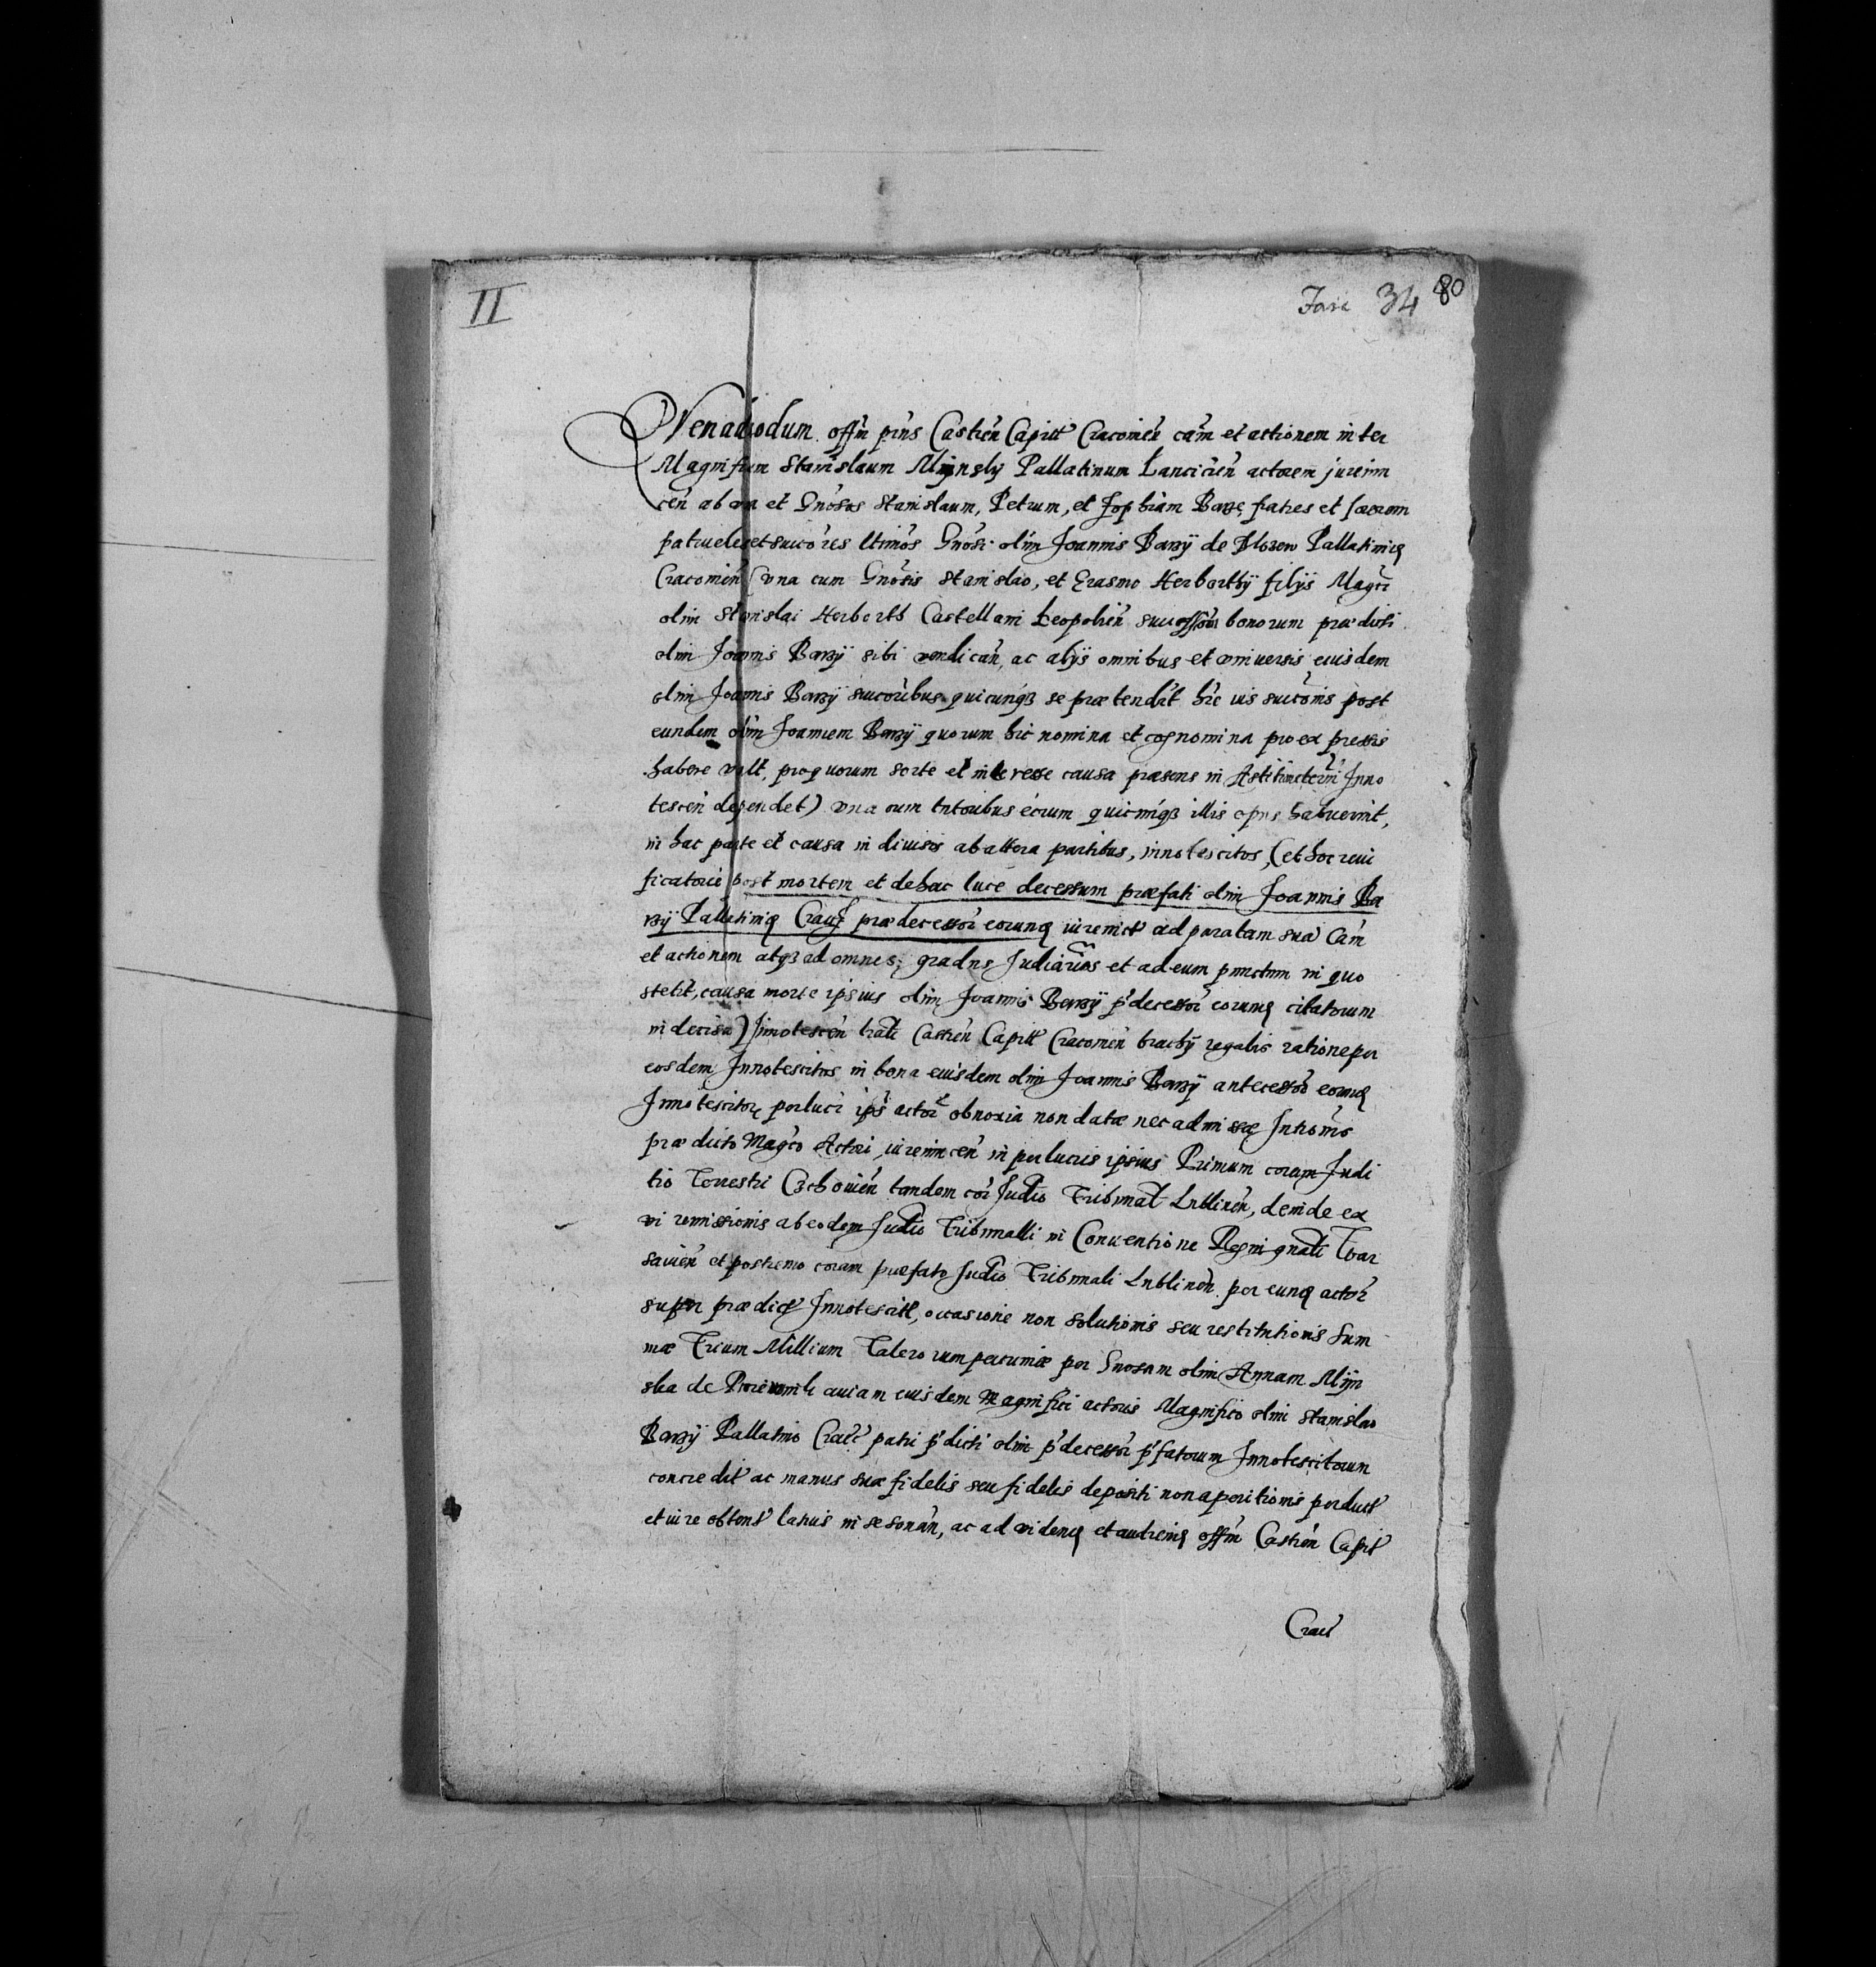 II
Fasc 34 80
Quenadmodum offm pns Castren Capitt Cracouien cam et actionem inter
Magnificum Stanislaum Mijnsky Pallatinum Lancicien actorem jureuin
cen ab vna et Gnosos Stanislaum, Petrum, et Sophiam Barze fratres et sororem
patrueles et succores ltimos Gnosi olim Joannis Barzÿ de Blozew Pallatiniq
Cracouien (vna cum Gnosis Stanislao, et Erasmo Herborthÿ filÿs Magci
olim Stanislai Herborth Castellani Leopolien successom bonorum prædicti
olim Joannis Barzÿ sibi vendican, ac alÿs omnibus et vniuersis eiusdem
olim Joannis Barzÿ succoribus quicunqȝ se prætendut hre ius succonis post
eundem olim Joannem Barzÿ quorum hic nomina et cognomina pro expressis
habere vult, pro quorum sorte et interesse causa præsens in Inno
tescen dependet) vna cum tutoribus eorum quicunqȝ illis opus habuerint,
in hac parte et causa indiuisos ab altera partibus, innotescitos, (et hoc reui
ficatorie post mortem et de hac luce decessum præfati olim Joannis Ba
rzÿ Pallatiniq Crac prædecessor eorunq iureuict ad paratam sua Cam
et actionem atqȝ ad omnes, gradus Judiarios et ad eum punctum in quo
stetit, causa morte ipsius olim Joannis Barzÿ pdecessor eorunq citatorum
indecisa) Innotescen trati Castren Capitt Cracouien brachÿ regalis ratione per
eosdem Innotescitos in bona eiusdem olim Joannis Barzÿ antecessor eorunq
Innotescitorq perlucr ips actor obnoxia non datæ nec admissæ Intromis
prædicto Magco Actori, iureuincen in perlucris ipsius Primum coram Judi
tio Terrestri Czchouien tandem cor Judio Tribunal Lublinen, deinde ex
vi remissionis ab eodem Judio Tribunalli in Conuentione Regni gnali War
sauien et postremo coram præfato Judio Tribunali Lublinen per eunq actor
super prædict Innotescitt, occasione non solutionis seu restitutionis Sum
mæ Trium Millium Talerorum pecuniæ per Gnosam olim Annam Mijn
ska de auiam eiusdem Magnifici actoris Magnifico olim Stanislao
Barzÿ Pallatino Crac patri pdicti olim pdecessor pfatorum Innotescitorum
concredit ac manus suæ fidelis seu fidelis depositi non aperitionis perduct
et iure obtent latius in se sonan, ac ad videnq et audienq offm Castren Capit
Crac